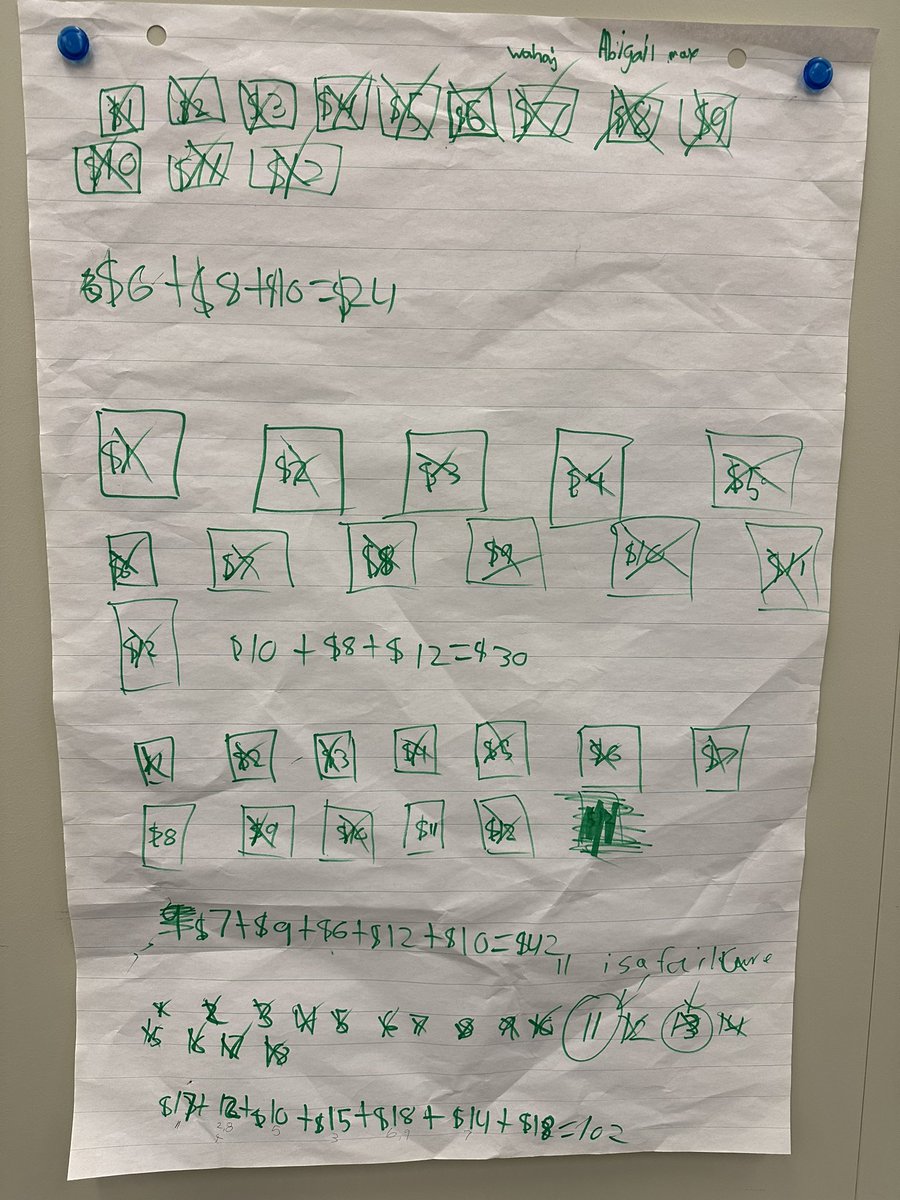 wahaj Abigail max
$1 $2 $3 $4 $5 $6 $7 $8 $9
$10 $11 $12
$6+$8+$10=$24
$1 $2 $3 $4 $5
$6 $7 $8 $9 $10 $11
$12 $10+$8+$12=$30
$1 $2 $3 $4 $5 $6 $7
$8 $9 $10 $11 $12
$7+$9+$6+$12+$10=$42
11 is a
1 2 3 4 5 6 7 8 9 10 11 12 13 14
15 16 17 18
+$10+$15+$18+$14+$18=102